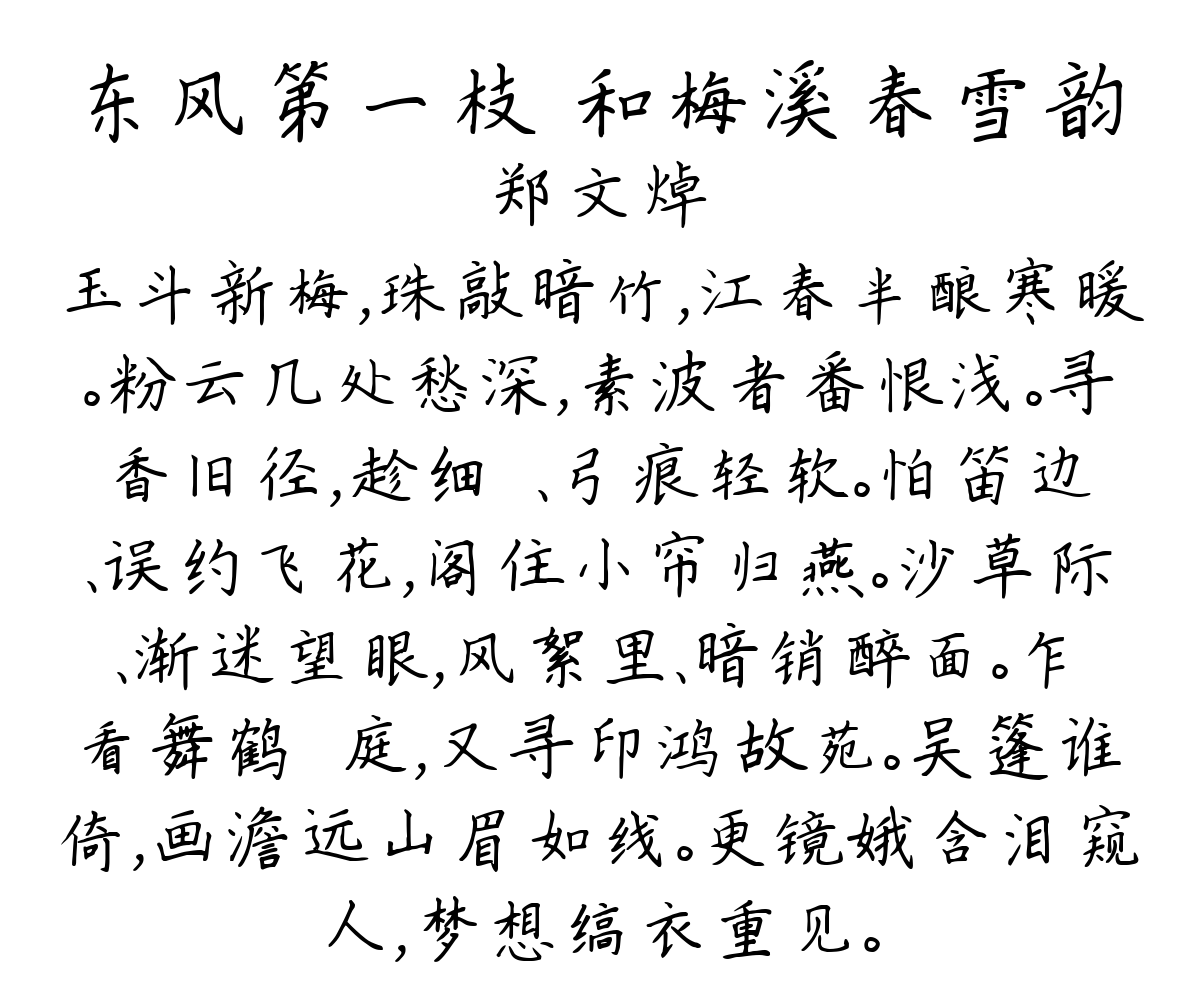 东风第一枝 和梅溪春雪韵
郑文焯
玉斗新梅,珠敲暗竹,江春半酿寒暖
。粉云几处愁深,素波者番恨浅。寻
香旧径,趁细 、弓痕轻软。怕笛边
、误约飞花,阁住小帘归燕。沙草际
、渐迷望眼,风絮里、暗销醉面。乍
看舞鹤 庭,又寻印鸿故苑。吴篷谁
倚,画澹远山眉如线。更镜娥含泪窥
人,梦想缟衣重见。